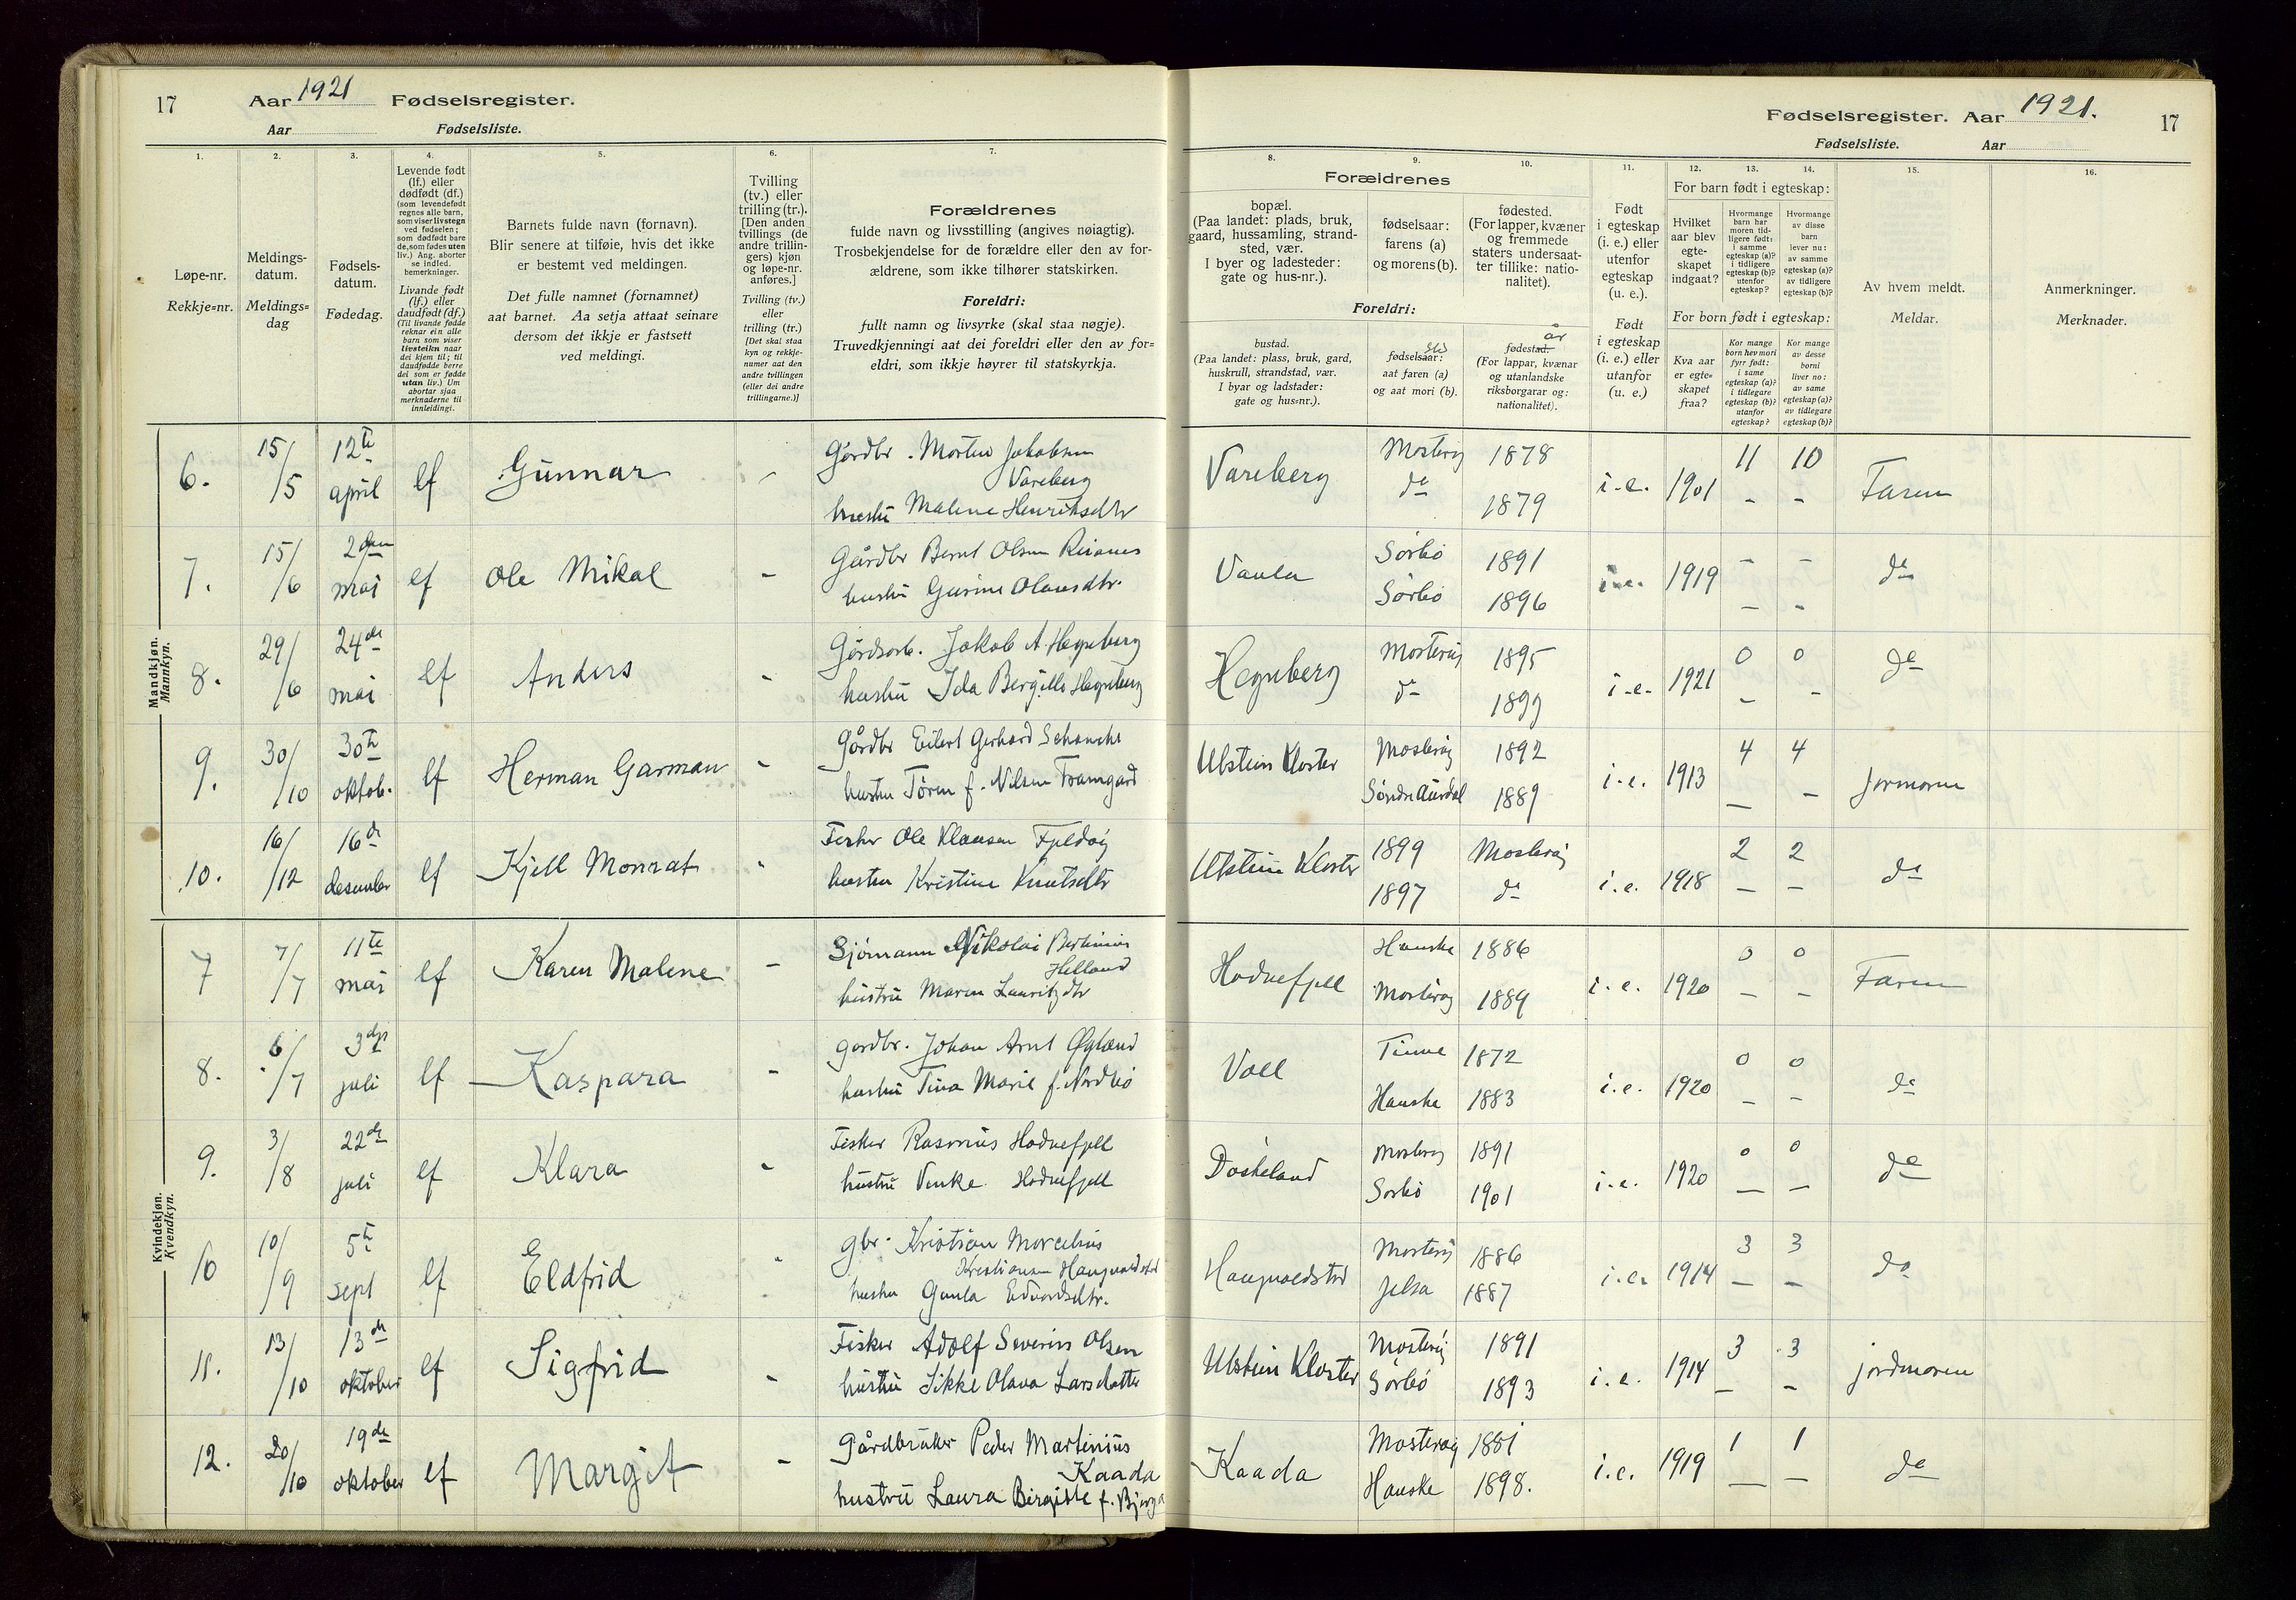 17 Aar 1921 Fødselsregister.
Aar Fødselsliste.
Fødselsregister. Aar 1921. 17
Fødselsliste. Aar
1. 2. 3. 4. 5. 6. 7.
Løpe-nr.
Rekkje=nr.
Meldings-
datum.
Meldings=
dag
Fødsels-
datum.
Fødedag.
Levende født
(lf.) eller
dødfødt (df.)
(som levendefødt
regnes alle barn,
som viser livstegn
ved fødselen;
som dødfødt bare
de, som fødes uten
liv.) Ang. aborter
se indled.
bemerkninger.
Livande født
(lf.) eller
daudfødt (df.)
(Til livande fødde
reknar ein alle
barn som viser
livsteikn naar
dei kjem til; til
daudfødde berre
dei som er fødde
utan liv.) Um
abortar sjaa
merknaderne til
innleidingi.
Barnets fulde navn (fornavn).
Blir senere at tilføie, hvis det ikke
er bestemt ved meldingen.
Det fulle namnet (fornamnet)
aat barnet. Aa setja attaat seinare
dersom det ikkje er fastsett
ved meldingi.
Tvilling
(tv.) eller
trilling (tr.).
[Den anden
tvillings (de
andre trillin-
gers) kjøn
og løpe-nr.
anføres.]
Tvilling (tv.)
eller
trilling (tr.)
[Det skal staa
kyn og rekkje-
numer aat den
andre tvillingen
(eller dei andre
trillingarne.)]
Forældrenes
fulde navn og livsstilling (angives nøiagtig).
Trosbekjendelse for de forældre eller den av for-
ældrene, som ikke tilhører statskirken.
Foreldri:
fullt namn og livsyrke (skal staa nøgje).
Truvedkjenningi aat dei foreldri eller den av for=
eldri, som ikkje høyrer til statskyrkja.
8. 9. 10. 11. 12. 13. 14. 15. 16.
Forældrenes
bopæl.
(Paa landet: plads, bruk,
gaard, hussamling, strand-
sted, vær.
I byer og ladesteder:
gate og hus-nr.).
fødselsaar:
farens (a)
og morens (b).
fødested.
(For lapper, kvæner
og fremmede
staters undersaat-
ter tillike: natio-
nalitet).
Foreldri:
bustad.
(Paa landet: plass, bruk, gard,
huskrull, strandstad, vær.
I byar og ladstader:
gate og hus=nr.).
fødselsaar:
aat faren (a)
og aat mori (b).
år
fødestad.
(For lappar, kvænar
og utanlandske
riksborgarar og:
nationalitet).
Født
i egteskap
(i. e.) eller
utenfor
egteskap
(u. e.).
Født
i egteskap
(i. e.) eller
utanfor
(u. e.)
For barn født i egteskap:
Hvilket
aar blev
egte-
skapet
indgaat?
Hvormange
barn har
moren tid-
ligere født:
i samme
egteskap (a)?
i tidligere
egteskap (b)?
utenfor
egteskap?
Hvormange
av disse
barn
lever nu:
av samme
egteskap (a)?
av tidligere
egteskap (b)?
For born født i egteskap:
Kva aar
er egte=
skapet
fraa?
Kor mange
born hev mori
fyrr født:
i same
egteskap (a)?
i tidlegare
egteskap (b)?
utanfor
egteskap?
Kor mange
av desse
borni
liver no:
av same
egteskap (a)?
av tidlegare
egteskap (b)?
Av hvem meldt.
Meldar.
Anmerkninger.
Merknader.
Mandkjøn.
Mannkyn.
6. 15/5 12te april lf Gunnar - Gårdbr. Morten Jakobsen
Vareberg
hustru Malene Henriksdtr
Vareberg Mosterøy 1878 i.e. 1901 11 10 Faren
do 1879 - -
7. 15/6 2den mai lf Ole Mikal - Gårdbr Bernt Olsen
hustru Gurine Olausdtr.
Vaula Sørbø 1891 i.e. 1919 - - do
Sørbø 1896 - -
8. 29/6 24de mai lf Anders - Jakob A. Hegreberg
hustru Ida Hegreberg
Hegreberg Mosterøy 1895 i.e. 1921 0 0 do
do 1899 - -
9. 30/10 30te oktob. lf Herman Garman - Gårdbr Eilert Gerhard Schanche
hustru Tøren f. Nilsen Framgard
Utstein Kloster Mosterøy 1892 i.e. 1913 4 4 jormoren
Søndre Aurdal 1889 - -
10. 16/12 16de desember lf Kjell Monrat - Fisker Ole Klausen Fjeldøy
hustru Kristine Knutsdtr
Utstein Kloster 1899 Mosterøy i.e. 1918 2 2 do
1897 do - -
Kvindekjøn.
Kvendkyn.
7 7/7 11te mai lf Karen Malene - Sjømann Nikolai Bertinius
Helland
hustru Maren Lauritzdtr
Hodnefjell Hauske 1886 i.e. 1920 0 0 Faren
Mosterøy 1889 - -
8. 6/7 3dje juli lf Kaspara - gardbr. Johan Arnt Øgland
hustru Tina Marie f. Nordbø
Voll Time 1872 i.e. 1920 0 0 do
Hauske 1883 - -
9. 3/8 22de juli lf Klara - Fisker Rasmus Hodnefjell
hustru Venke Hodnefjell
Daskeland Mosterøy 1891 i.e. 1920 0 0 do
Sørbø 1901 - -
10 10/9 5te sept lf Eldfrid - gbr. Kristian Marcelius
Kristiansen Haugvaldstad
hustru Gunla Edvardsdtr.
Haugvaldstad Mosterøy 1886 i.e. 1914 3 3 do
Jelsa 1887 - -
11. 13/10 13de oktober lf Sigfrid - Fisker Adolf Severin Olsen
hustru Sikke Olava Larsdatter
Utstein Kloster Mosterøy 1891 i.e. 1914 3 3 jordmoren
Sørbø 1893 - -
12. 20/10 19de oktober lf Margit - Gårdbruker Peder Martinius
Kaada
hustru Laura Birgitte f. Bjerga
Kaada Mosterøy 1881 i.e. 1919 1 1 do
Hauske 1898. - -